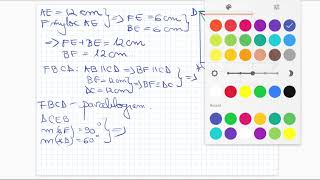 AE = 12 cm
F mijloc AE
=> FE = 6 cm
BE = 6 cm
=> FE + BE = 12 cm
BF = 12 cm
FBCD: AB || CD => BF || CD
BF = 12 cm
DC = 12 cm
=> BF = DC
FBCD - paralelogram
ΔCEB
=>
D